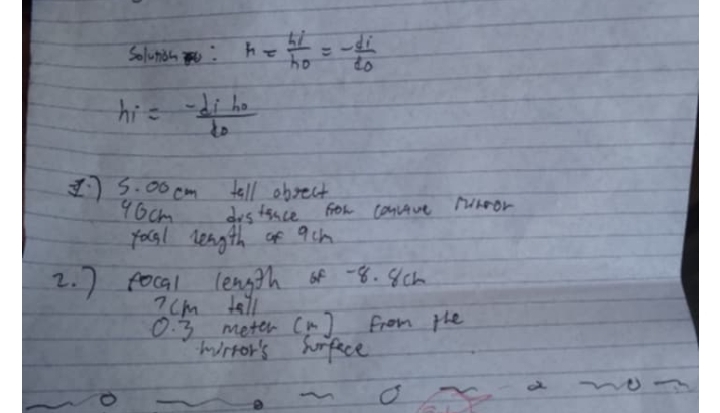 Solution : h = hi/ho = -di/do
hi = -di ho/do
1.) 5.00 cm tall object
40cm distance from concave mirror
focal length of 9cm
2.) focal length of -8.8cm
7cm tall
0.3 meter (m) from the
mirror's surface